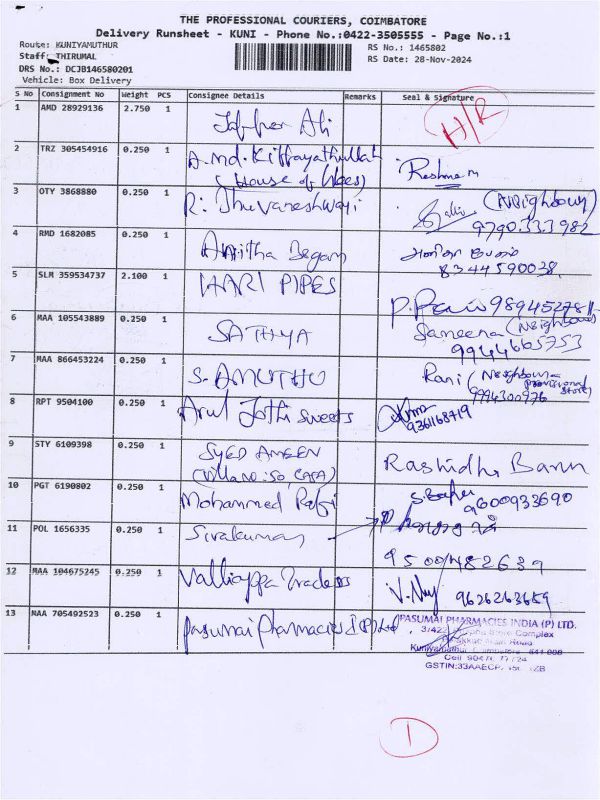 THE PROFESSIONAL COURIERS, COIMBATORE
Delivery Runsheet - KUNI - Phone No.:0422-3505555 - Page No.:1
Route: KUNIYAMUTHUR
RS No.: 1465802
Staff: THIRUMAL
RS Date: 28-Nov-2024
DRS No.: DCJB146580201
Vehicle: Box Delivery
S No Consignment No Weight PCS Consignee Details Remarks Seal & Signature
1 AMD 28929136 2.750 1 Ali H/R
2 TRZ 305454916 0.250 1 A. Md. Kiffayathullah
(House of
Reshma
3 OTY 3868880 0.250 1 R. Bhuvaneshwari
(Neighbour)
9790333982
4 RMD 1682085 0.250 1 Anitha Begam
8344590038
5 SLM 359534737 2.100 1 HARI PIPES
6 MAA 105543889 0.250 1 SATHYA Sameena (Neighbour)
9944665753
7 MAA 866453224 0.250 1 S. AMUTHU Rani (Neighbour
Provisional
Store)
9994300976
8 RPT 9504100 0.250 1 Arul Jothi Sweets
9361168419
9 STY 6109398 0.250 1 SYED AMEEN Rashidha Banu
10 PGT 6190802 0.250 1 Mohammed Rafi
9600933690
11 POL 1656335 0.250 1 Sivakumar
9500482639
12 MAA 104675245 0.250 1 Valliappa Traders
9626263659
13 NAA 705492523 0.250 1 Pasumai Pharmacies I (P) Ltd.
PASUMAI PHARMACIES INDIA (P) LTD.
Complex
1